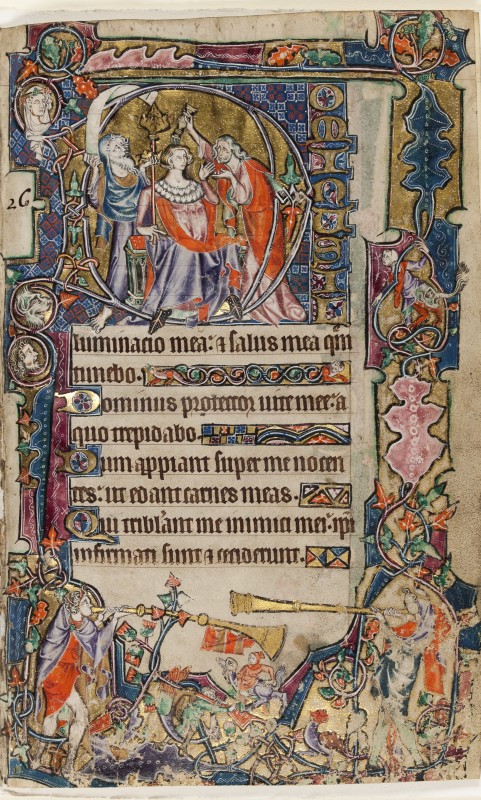 26
luminacio mea: ⁊ salus mea qm̄
timebo.
Dominus protector uite mee: a
quo trepidabo.
Dum appiant super me nocen
tes: ut edant carnes meas.
Qui tribl̄ant me inimici mei: ip̄i
infirmati sunt ⁊ ceciderunt.